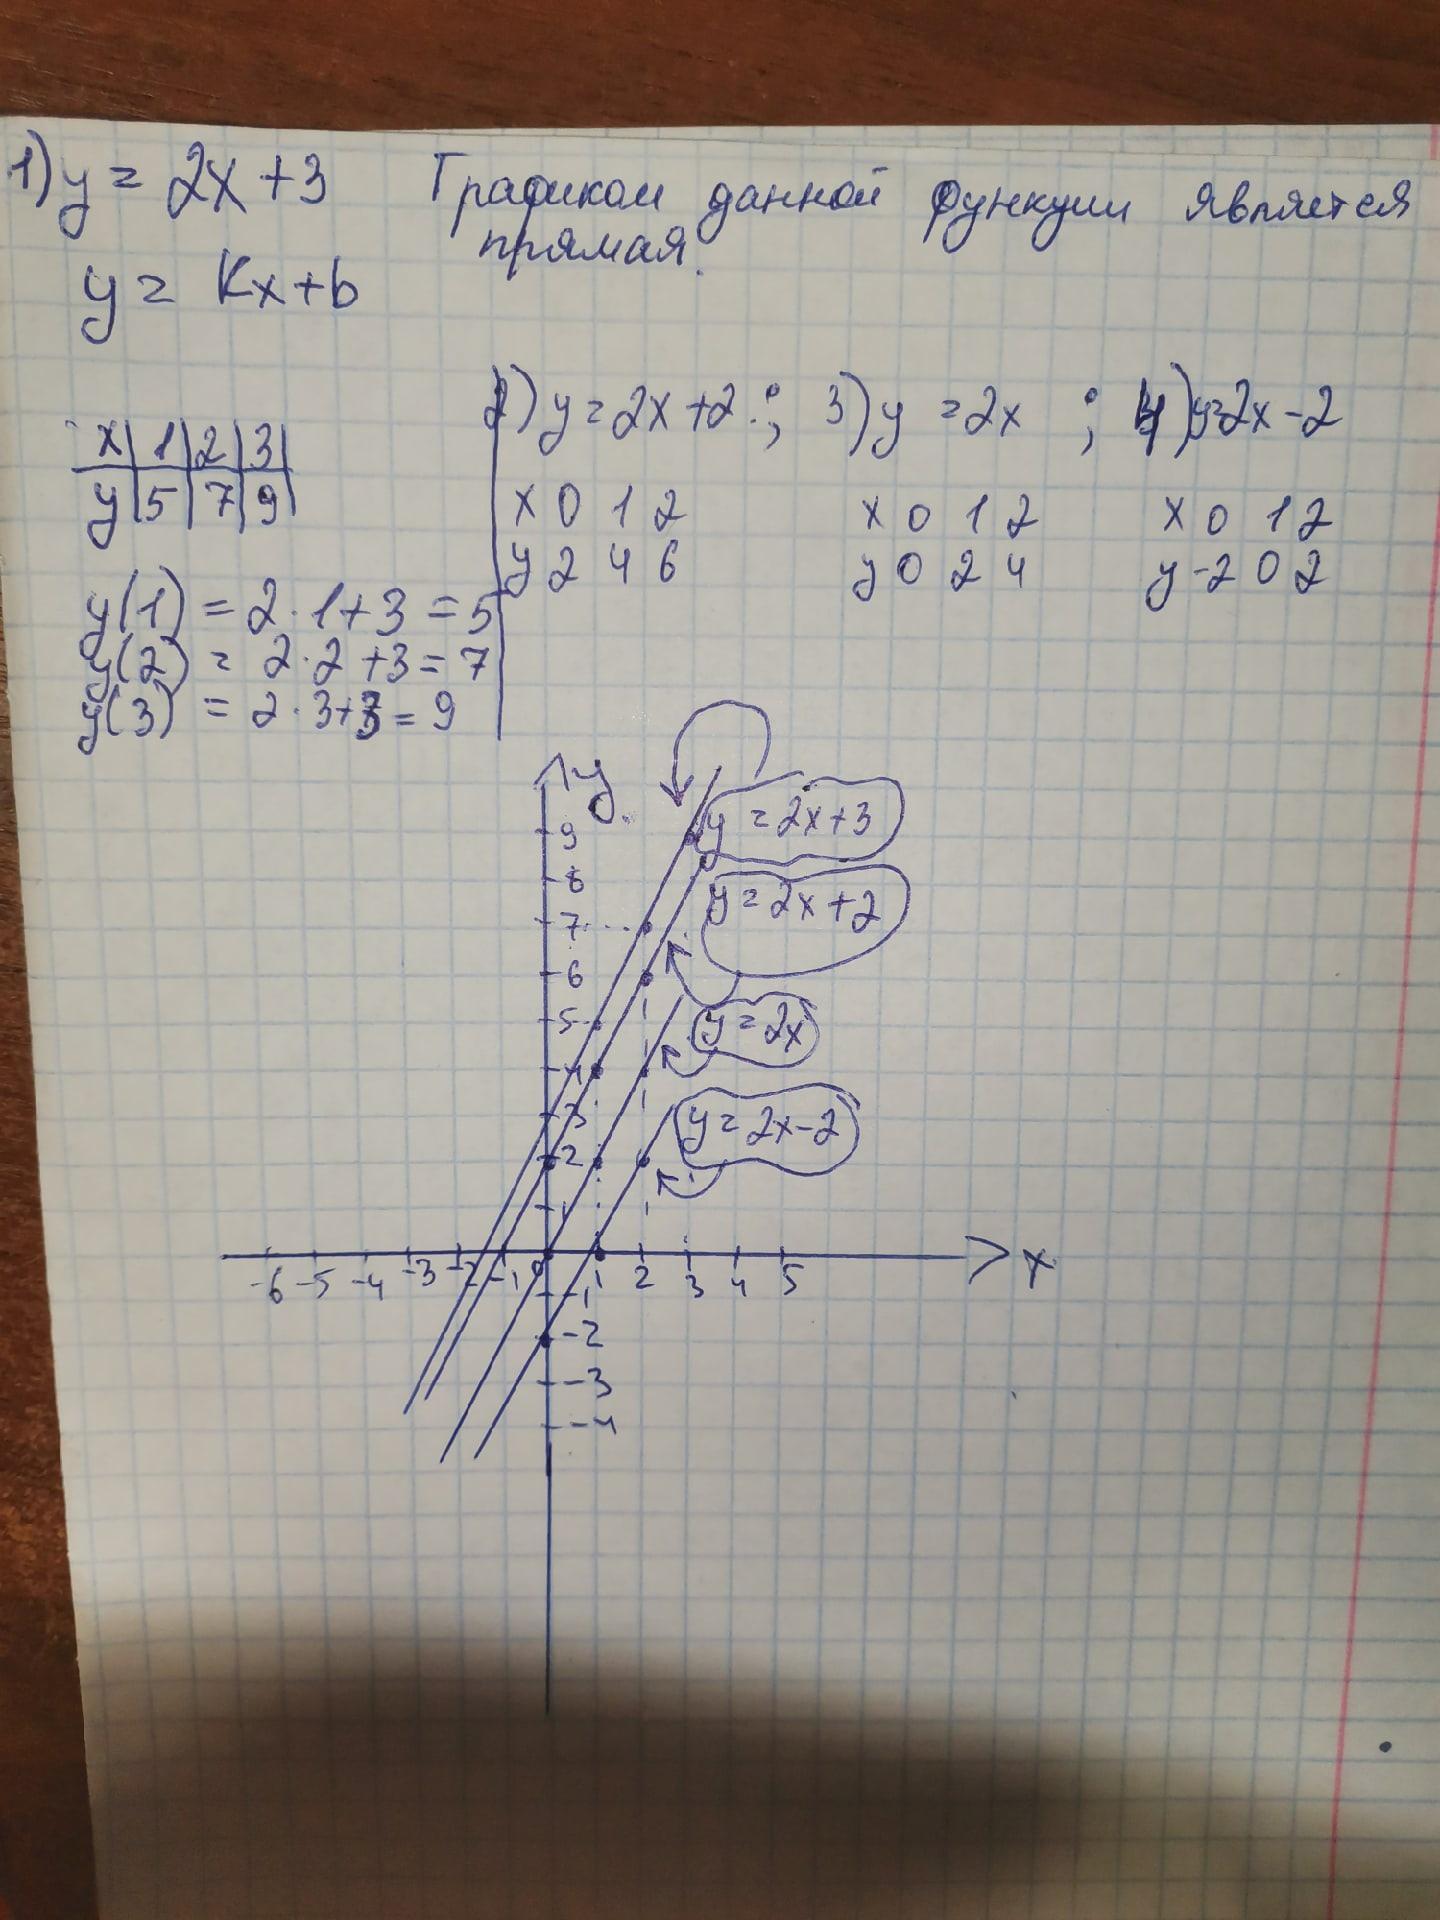 1) y = 2x + 3 Графиком данной функции является
прямая.
y = kx + b
x 1 2 3
y 5 7 9
y(1) = 2 · 1 + 3 = 5
y(2) = 2 · 2 + 3 = 7
y(3) = 2 · 3 + 3 = 9
2) y = 2x + 2 ; 3) y = 2x ; 4) y = 2x - 2
x 0 1 2 x 0 1 2 x 0 1 2
y 2 4 6 y 0 2 4 y -2 0 2
y
9
8
7
6
5
4
3
2
1
y = 2x + 3
y = 2x + 2
y = 2x
y = 2x - 2
-6 -5 -4 -3 -2 -1 0 1 2 3 4 5 x
-1
-2
-3
-4